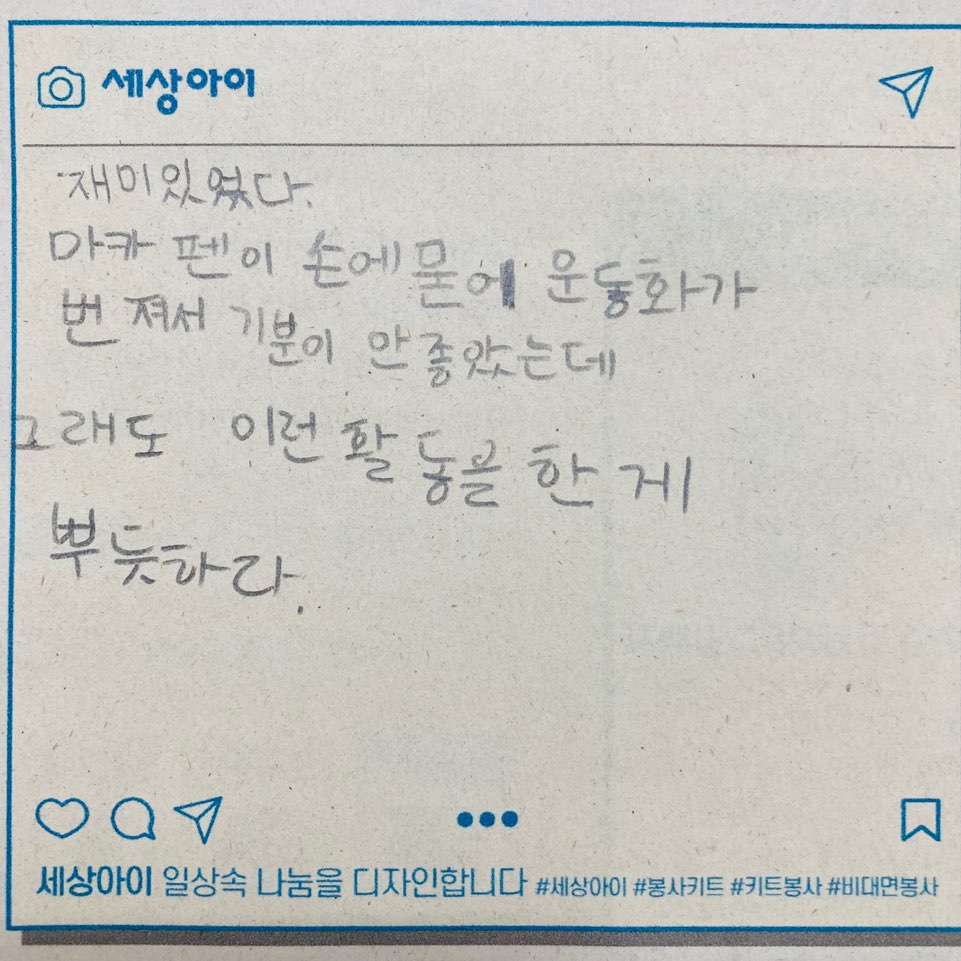 세상아이
재미있었다.
마카 펜이 손에 묻에 운동화가
번져서 기분이 안좋았는데
그래도 이런 활동을 한 게
뿌듯하다.
세상아이 일상속 나눔을 디자인합니다 #세상아이 #봉사키트 #키트봉사 #비대면봉사